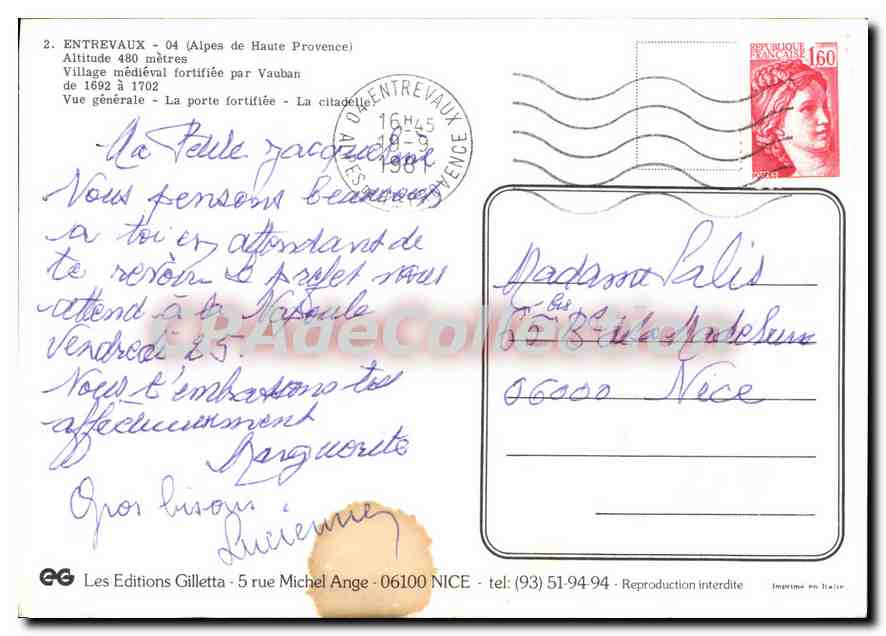 2. ENTREVAUX - 04 (Alpes de Haute Provence)
Altitude 480 mètres
Village médiéval fortifiée par Vauban
de 1692 à 1702
Vue générale - La porte fortifiée - La citadelle
04 ENTREVAUX
16H45
18-9
1981
ALPES DE HAUTE PROVENCE
REPUBLIQUE
FRANÇAISE 1,60
Ma Petite Jacqueline
Nous pensons beaucoup
a toi en attendant de
te revoir le préfet nous
attend à la Napoule
Vendredi 25.
Nous t'embrassons tres
affectueusement
Marguerite
Gros bisous
Lucienne
Madame Palis
bis Bd de la Madeleine
06000 Nice
CPAdeCollection
EG Les Editions Gilletta - 5 rue Michel Ange - 06100 NICE - tel: (93) 51-94-94 - Reproduction interdite
Imprimé en Italie